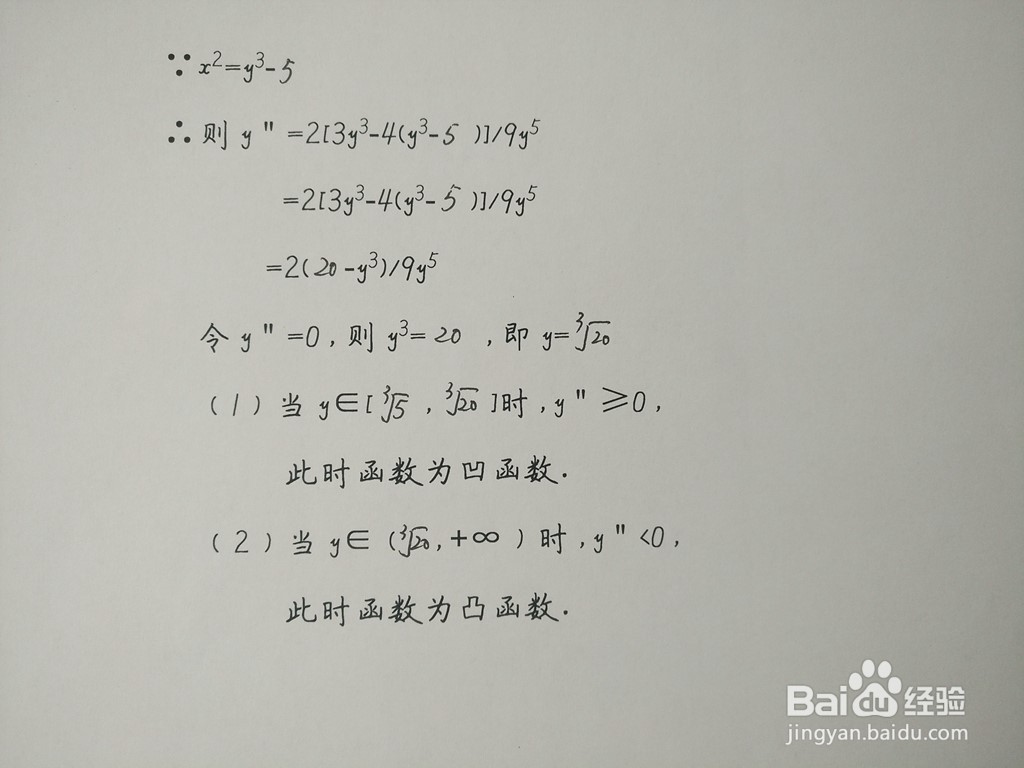 ∵x²=y³-5
∴则 y"=2[3y³-4(y³-5 )]/9y⁵
=2[3y³-4(y³-5 )]/9y⁵
=2(20-y³)/9y⁵
令 y"=0,则 y³=20 ,即 y=∛20
(1)当 y∈[∛5 ,∛20 ]时,y"≥0,
此时函数为凹函数.
(2)当 y∈(∛20,+∞ )时,y"<0,
此时函数为凸函数.
Baidu经验
jingyan.baidu.com